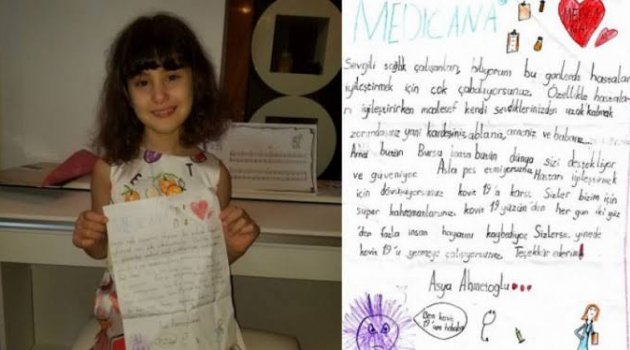 MEDICANA
Sevgili sağlık çalışanları, biliyorum bu günlerde hastaları
iyileştirmek için çok çabalıyorsunuz. Özellikle hastala-
rı iyileştirirken maalesef kendi sevdiklerinizden uzak kalmak
zorundasınız yani kardeşiniz, ablanız, anneniz ve babanız...
Ama bütün Bursa bütün dünya sizi destekliyor
ve güveniyor. Asla pes etmiyorsunuz. Hastaları iyileştirmek
için dövüşüyorsunuz kovit 19'a karşı. Sizler bizim için
süper kahramanlarsınız. kovit 19 yüzün'den her gün iki yüz
'den fazla insan hayatını kaybediyor. Sizlerse yinede
kovit 19'u yenmeye çalışıyorsunuz. Teşekkür ederim!
Asya Ahmetoğlu
Ben kovit
19'um hahaha